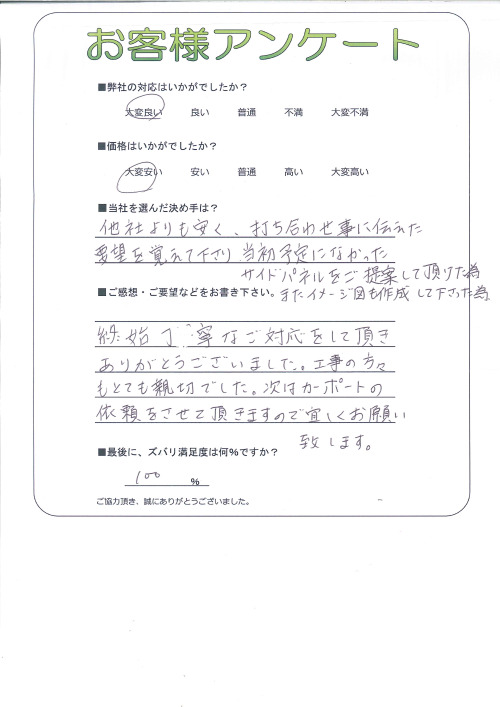 お客様アンケート
■弊社の対応はいかがでしたか？
大変良い 良い 普通 不満 大変不満
■価格はいかがでしたか？
大変安い 安い 普通 高い 大変高い
■当社を選んだ決め手は？
他社よりも安く、打ち合わせ事に伝えた
要望を覚えて下さり 当初予定になかった
サイドパネルをご提案して頂けた為
■ご感想・ご要望などをお書き下さい。
またイメージ図も作成して下さった為
終始丁寧なご対応をして頂き
ありがとうございました。工事の方々
もとても親切でした。次はカーポートの
依頼をさせて頂きますので宜しくお願い
致します。
■最後に、ズバリ満足度は何％ですか？
100 ％
ご協力頂き、誠にありがとうございました。